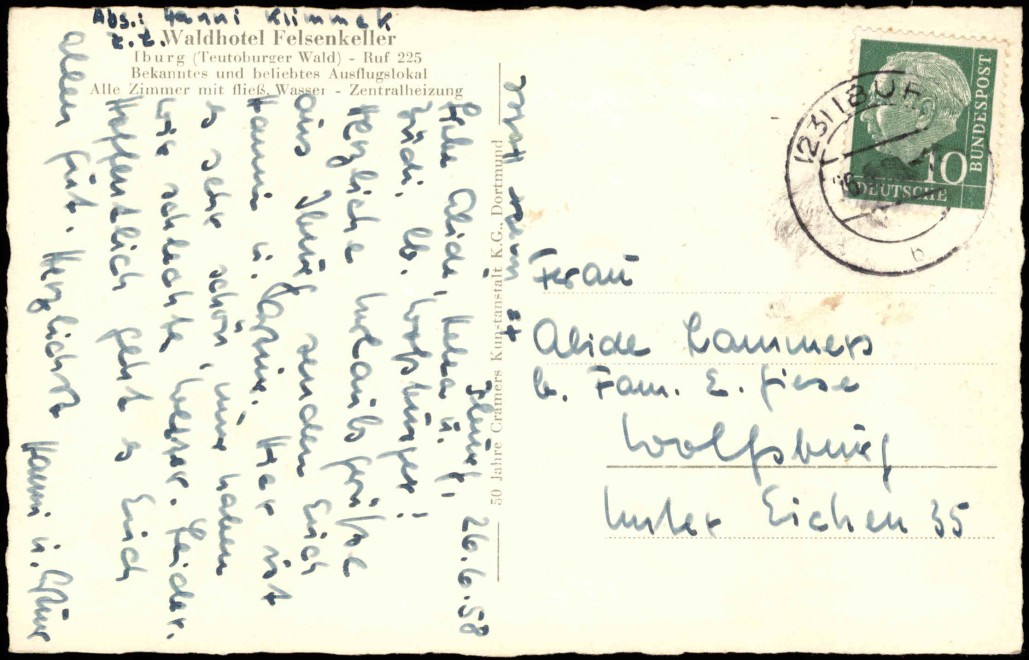 Abs.: Hanni Klimmek
z. Z.
Waldhotel Felsenkeller
Iburg (Teutoburger Wald) - Ruf 225
Bekanntes und beliebtes Ausflugslokal
Alle Zimmer mit fließ. Wasser - Zentralheizung
Iburg, 26.6.58
Liebe Alide, Helea u.
Trudi, lb. Wolfsburger!
Herzliche Urlaubsgrüße
aus Iburg senden Euch
Hanni u. Hier ist
es sehr schön, nur haben
wir schlechtes Wetter. Leider.
Hoffentlich geht es Euch
allen gut. Herzlichst Hanni u.
50 Jahre Cramers Kunstanstalt K.G., Dortmund
Frau
Alide Lammers
b. Fam. E. Giese
Wolfsburg
Unter Eichen 35
(23) IBURG
b
10
DEUTSCHE
BUNDESPOST